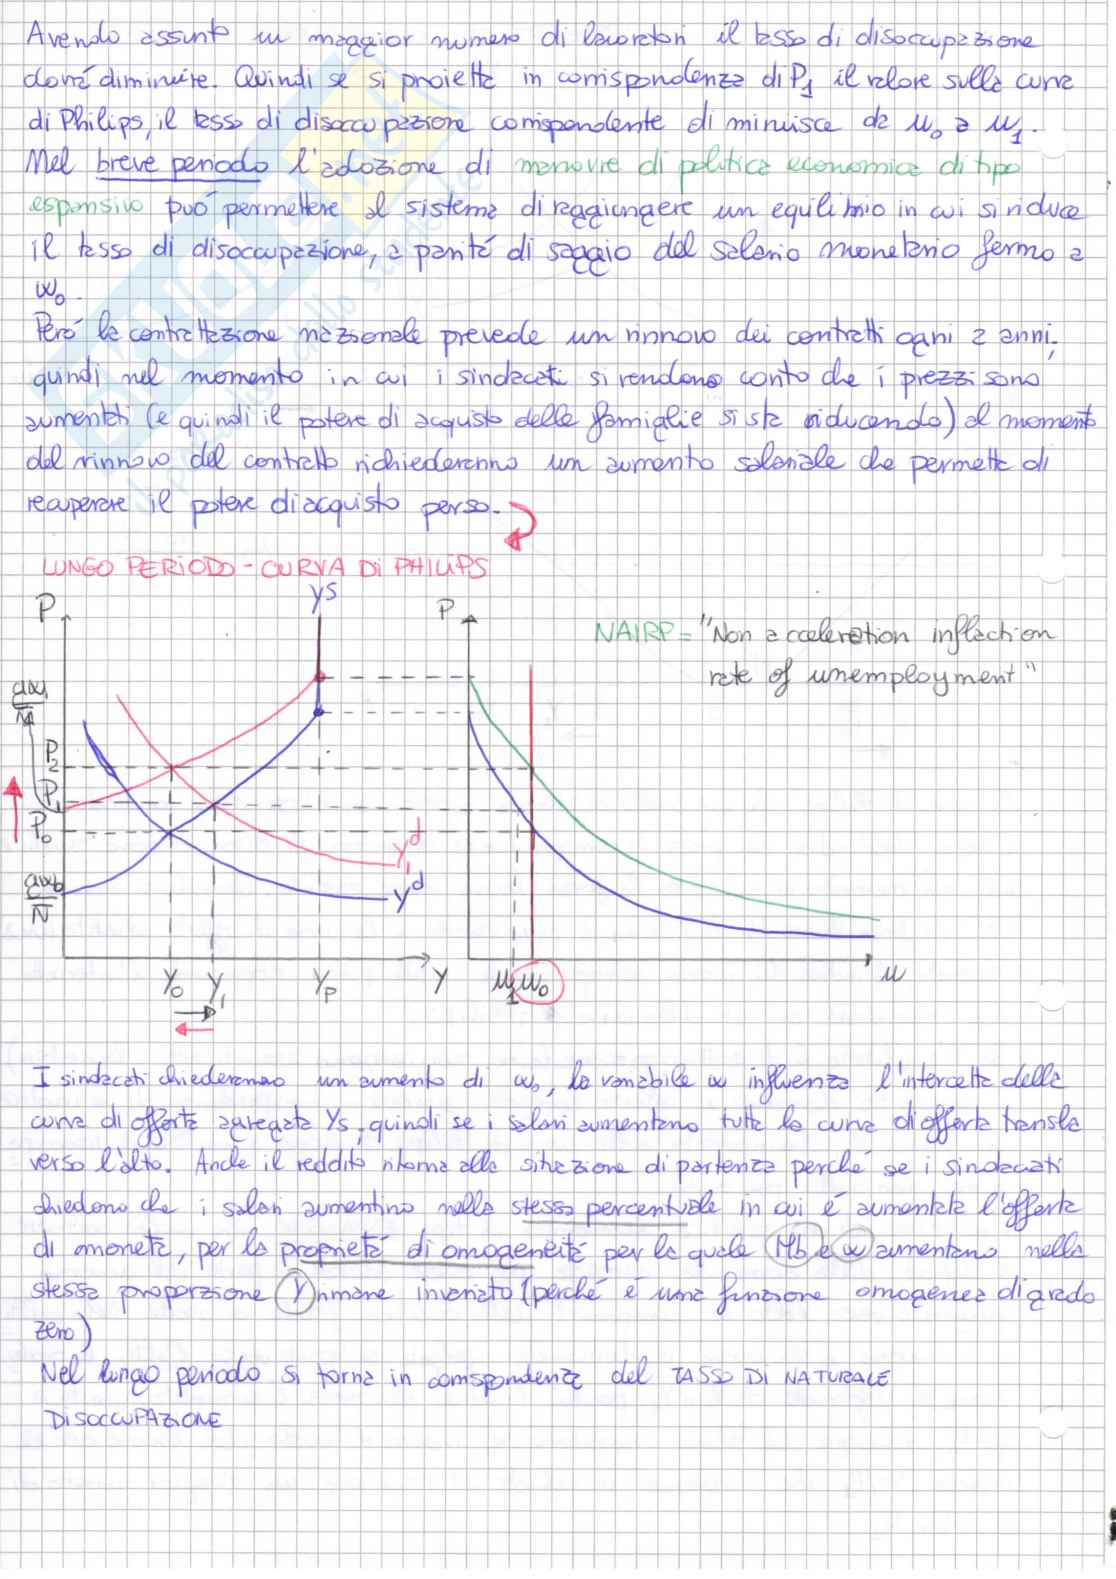 Avendo assunto un maggior numero di lavoratori il tasso di disoccupazione
dovrà diminuire. Quindi se si proietta in corrispondenza di P1 il valore sulla curva
di Philips, il tasso di disoccupazione corrispondente diminuisce da u0 a u1.
Nel breve periodo l'adozione di manovre di politica economica di tipo
espansivo può permettere al sistema di raggiungere un equilibrio in cui si riduce
il tasso di disoccupazione, a parità di saggio del salario monetario fermo a
w0.
Però la contrattazione nazionale prevede un rinnovo dei contratti ogni 2 anni,
quindi nel momento in cui i sindacati si rendono conto che i prezzi sono
aumentati (e quindi il potere di acquisto delle famiglie si sta riducendo) al momento
del rinnovo del contratto richiederanno un aumento salariale che permetta di
recuperare il potere di acquisto perso.
LUNGO PERIODO - CURVA DI PHILIPS
P
YS
P
NAIRP = "Non acceleration inflection
rate of unemployment"
P2
P1
P0
Y1d
Yd
Y0 Y1 Yp Y
u1 u0 u
I sindacati chiederanno un aumento di w0, la variabile w influenza l'intercetta della
curva di offerta agregata Ys, quindi se i salari aumentano tutta la curva di offerta transla
verso l'alto. Anche il reddito ritorna alla situazione di partenza perché se i sindacati
chiedono che i salari aumentino nella stessa percentuale in cui è aumentata l'offerta
di moneta, per la proprietà di omogeneità per la quale Mb e w aumentano nella
stessa proporzione Y rimane invariato (perché è una funzione omogenea di grado
zero)
Nel lungo periodo si torna in corrispondenza del TASSO DI NATURALE
DISOCCUPAZIONE